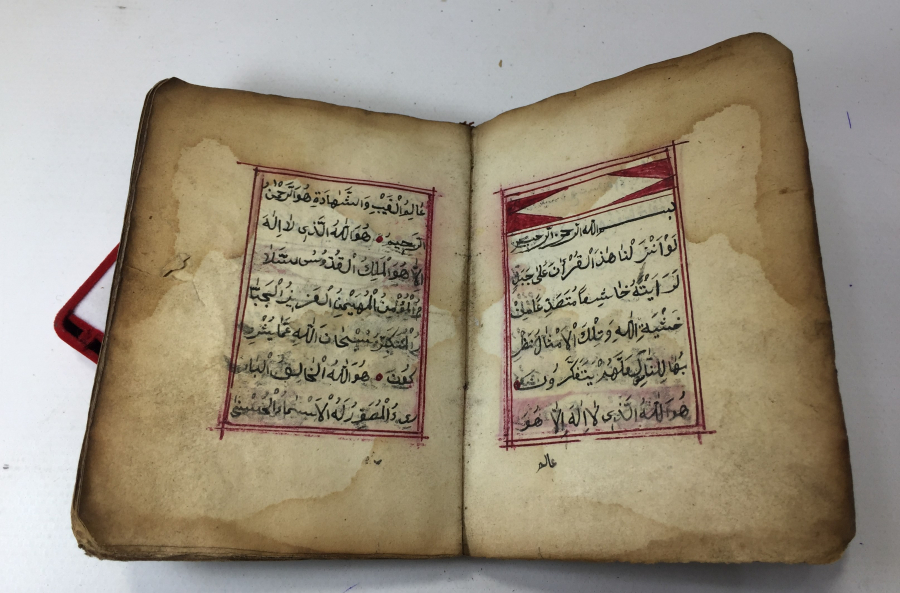 بسم الله الرحمن الرحيم
لَوْ اَنْزَلْنَا هٰذَ الْقُرْاٰنَ عَلٰى جَبَلٍ
لَرَاَيْتَهُ خَاشِعًا مُتَصَدِّعًا مِنْ
خَشْيَةِ اللّٰهِ وَتِلْكَ الْاَمْثَالُ نَضْرِ
بُهَا لِلنَّاسِ لَعَلَّهُمْ يَتَفَكَّرُونَ
هُوَ اللّٰهُ الَّذِى لَا اِلٰهَ اِلَّا هُوَ
عالم
عَالِمُ الْغَيْبِ وَالشَّهَادَةِ هُوَ الرَّحْمٰنُ
الرَّحِيمُ هُوَ اللّٰهُ الَّذِى لَا اِلٰهَ
اِلَّا هُوَ الْمَلِكُ الْقُدُّوسُ سَّلَا
مُ الْمُؤْمِنُ الْمُهَيْمِنُ الْعَزِيزُ الْجَبَّا
رُ الْمُتَكَبِّرُ سُبْحَانَ اللّٰهِ عَمَّا يُشْرِ
كُونَ هُوَ اللّٰهُ الْخَالِقُ الْبَارِ
ىءُ الْمُصَوِّرُ لَهُ الْاَسْمَاءُ الْحُسْنٰى